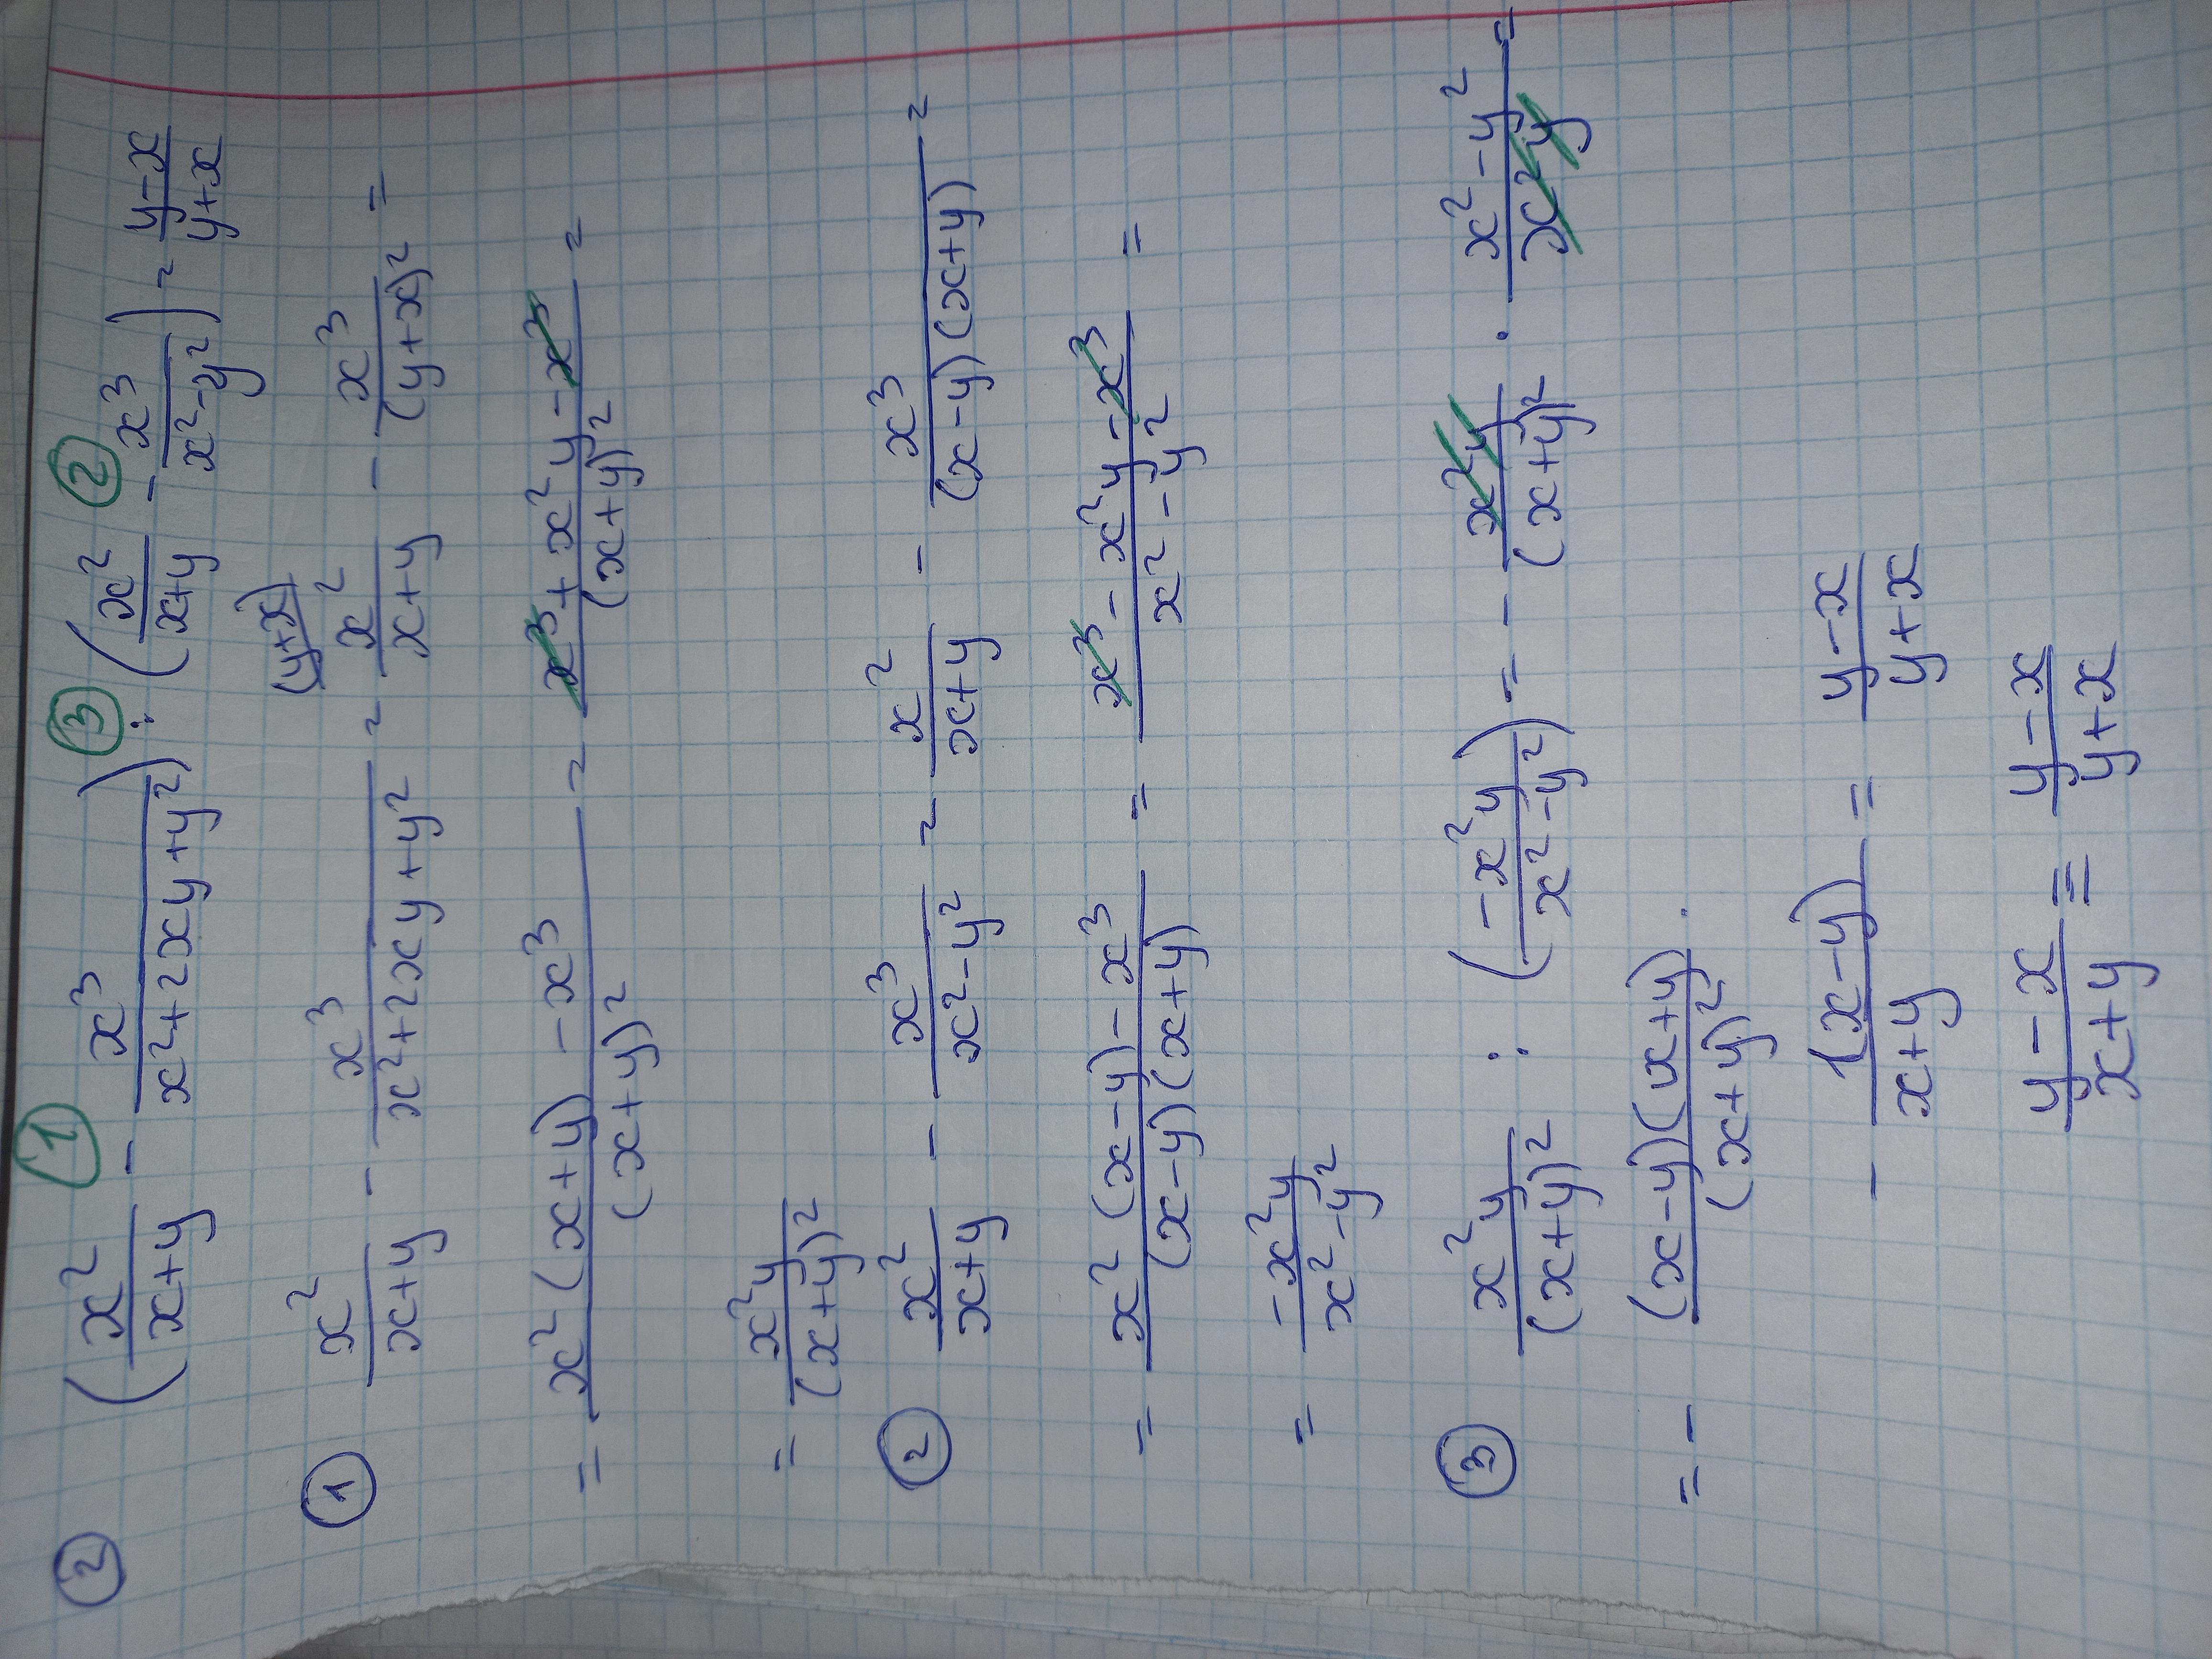 ② (x²/(x+y) - x³/(x²+2xy+y²)) : (x²/(x+y) - x³/(x²-y²)) = (y-x)/(y+x)
① ② ③
(y+x)
① x²/(x+y) - x³/(x²+2xy+y²) = x²/(x+y) - x³/(y+x)² =
= (x²(x+y) - x³)/(x+y)² = (x³ + x²y - x³)/(x+y)² =
= x²y/(x+y)²
② x²/(x+y) - x³/(x²-y²) = x²/(x+y) - x³/((x-y)(x+y)) =
= (x²(x-y) - x³)/((x-y)(x+y)) = (x³ - x²y - x³)/(x² - y²) =
= -x²y/(x²-y²)
③ x²y/(x+y)² : (-x²y/(x²-y²)) = - x²y/(x+y)² · (x²-y²)/(x²y) =
= - ((x-y)(x+y))/(x+y)² .
- 1(x-y)/(x+y) = (y-x)/(y+x)
(y-x)/(x+y) = (y-x)/(y+x)